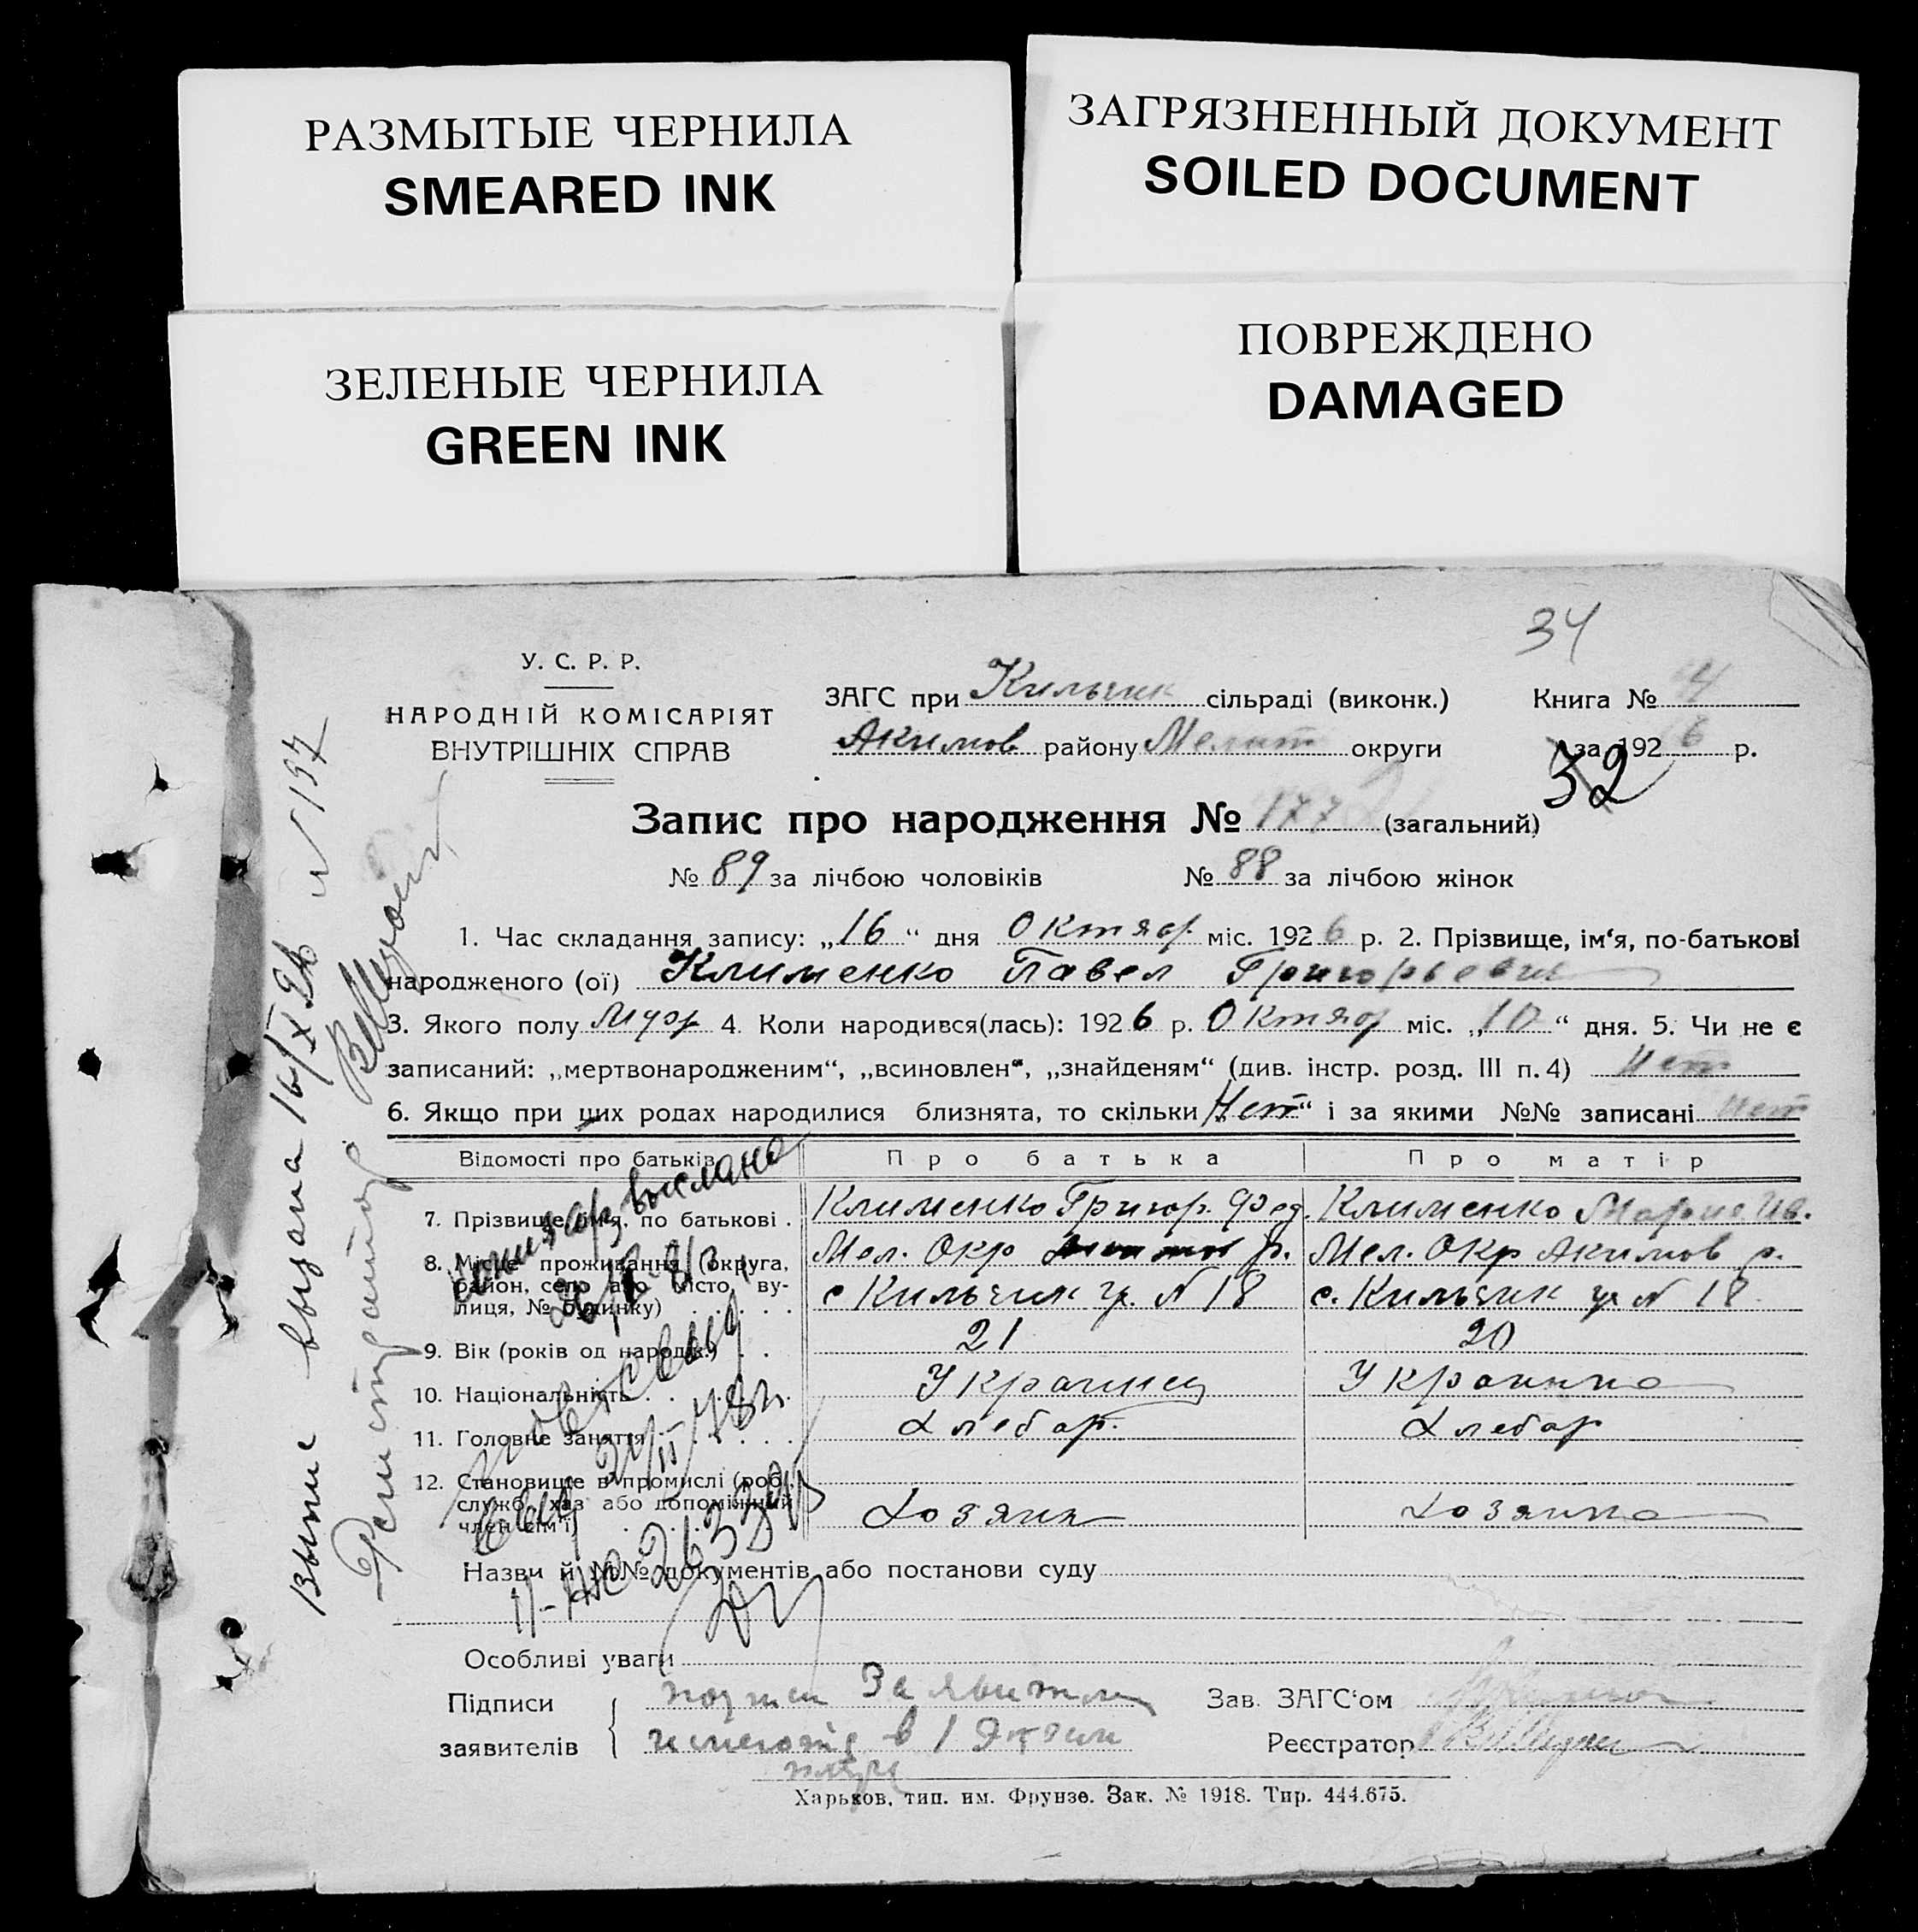 РАЗМЫТЫЕ ЧЕРНИЛА
SMEARED INK
ЗАГРЯЗНЕННЫЙ ДОКУМЕНТ
SOILED DOCUMENT
ЗЕЛЕНЫЕ ЧЕРНИЛА
GREEN INK
ПОВРЕЖДЕНО
DAMAGED
34
У. С. Р. Р.
НАРОДНІЙ КОМІСАРІЯТ
ВНУТРІШНІХ СПРАВ
ЗАГС при Кильчик сільраді (виконк.)
Акимов району Мелит округи
Книга № 4
за 1926 р.
32
Запис про народження № 177 (загальний)
№ 89 за лічбою чоловіків № 88 за лічбою жінок
1. Час складання запису: „16“ дня Октяб міс. 1926 р. 2. Прізвище, ім‘я, по-батькові
народженого (ої) Клименко Павел Григорьевич
3. Якого полу Мур 4. Коли народився(лась): 1926 р. Октяб міс. „10“ дня. 5. Чи не є
записаний: „мертвонародженим“, „всиновлен“, „знайденям“ (див. інстр. розд. III п. 4) Нет
6. Якщо при цих родах народилися близнята, то скільки „Нет“ і за якими №№ записані нет
Відомості про батьків Про батька Про матір
7. Прізвище, ім‘я, по батькові . Клименко Григор. Фед. Клименко Мария Ив.
8. Місце проживання (округа, район, село або місто, вулиця, № будинку) Мел. Окр р. Мел. Окр Акимов р.
с Кильчик N 18 с. Кильчик N 18
9. Вік (років од народж.) . . 21 20
10. Національність Украинец Украинка
11. Головне заняття Хлебор. Хлебор
12. Становище в промислі (роб., службо., хаз або допоміжний член сім‘ї) Хозяин Хозяика
Назви й №№ документів або постанови суду
Особливі уваги
Підписи заявителів подписи Заявителя
имеются в 1 Экзем
пляре
Зав. ЗАГС‘ом
Реєстратор
Харьков, тип. им. Фрунзе. Зак. № 1918. Тир. 444.675.
выдана 16/X 26 N 197
Регистратор
копия выслана
21/II 78г.